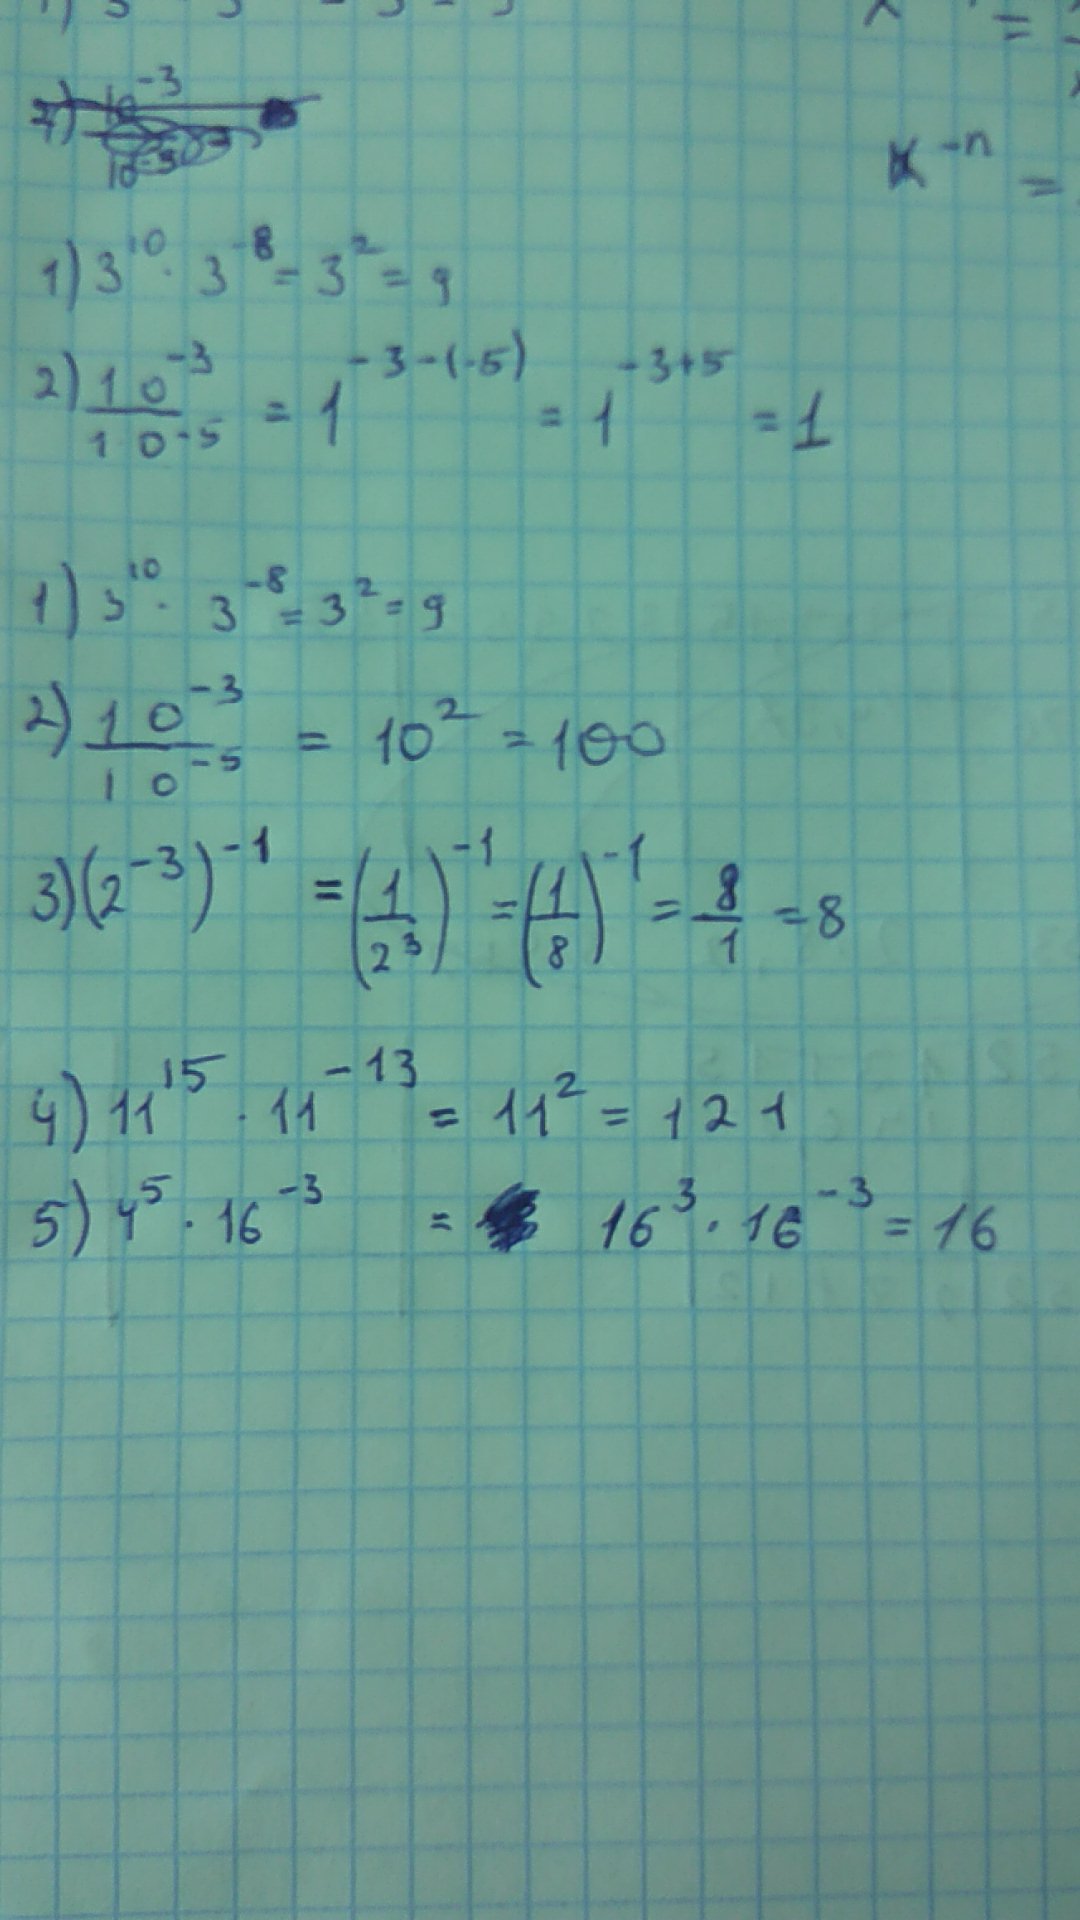 x^{-n} =
1) 3^{10} · 3^{-8} = 3^2 = 9
2) 10^{-3} / 10^{-5} = 1^{-3-(-5)} = 1^{-3+5} = 1
1) 3^{10} · 3^{-8} = 3^2 = 9
2) 10^{-3} / 10^{-5} = 10^2 = 100
3) (2^{-3})^{-1} = (1/2^3)^{-1} = (1/8)^{-1} = 8/1 = 8
4) 11^{15} · 11^{-13} = 11^2 = 121
5) 4^5 · 16^{-3} = 16^3 · 16^{-3} = 16